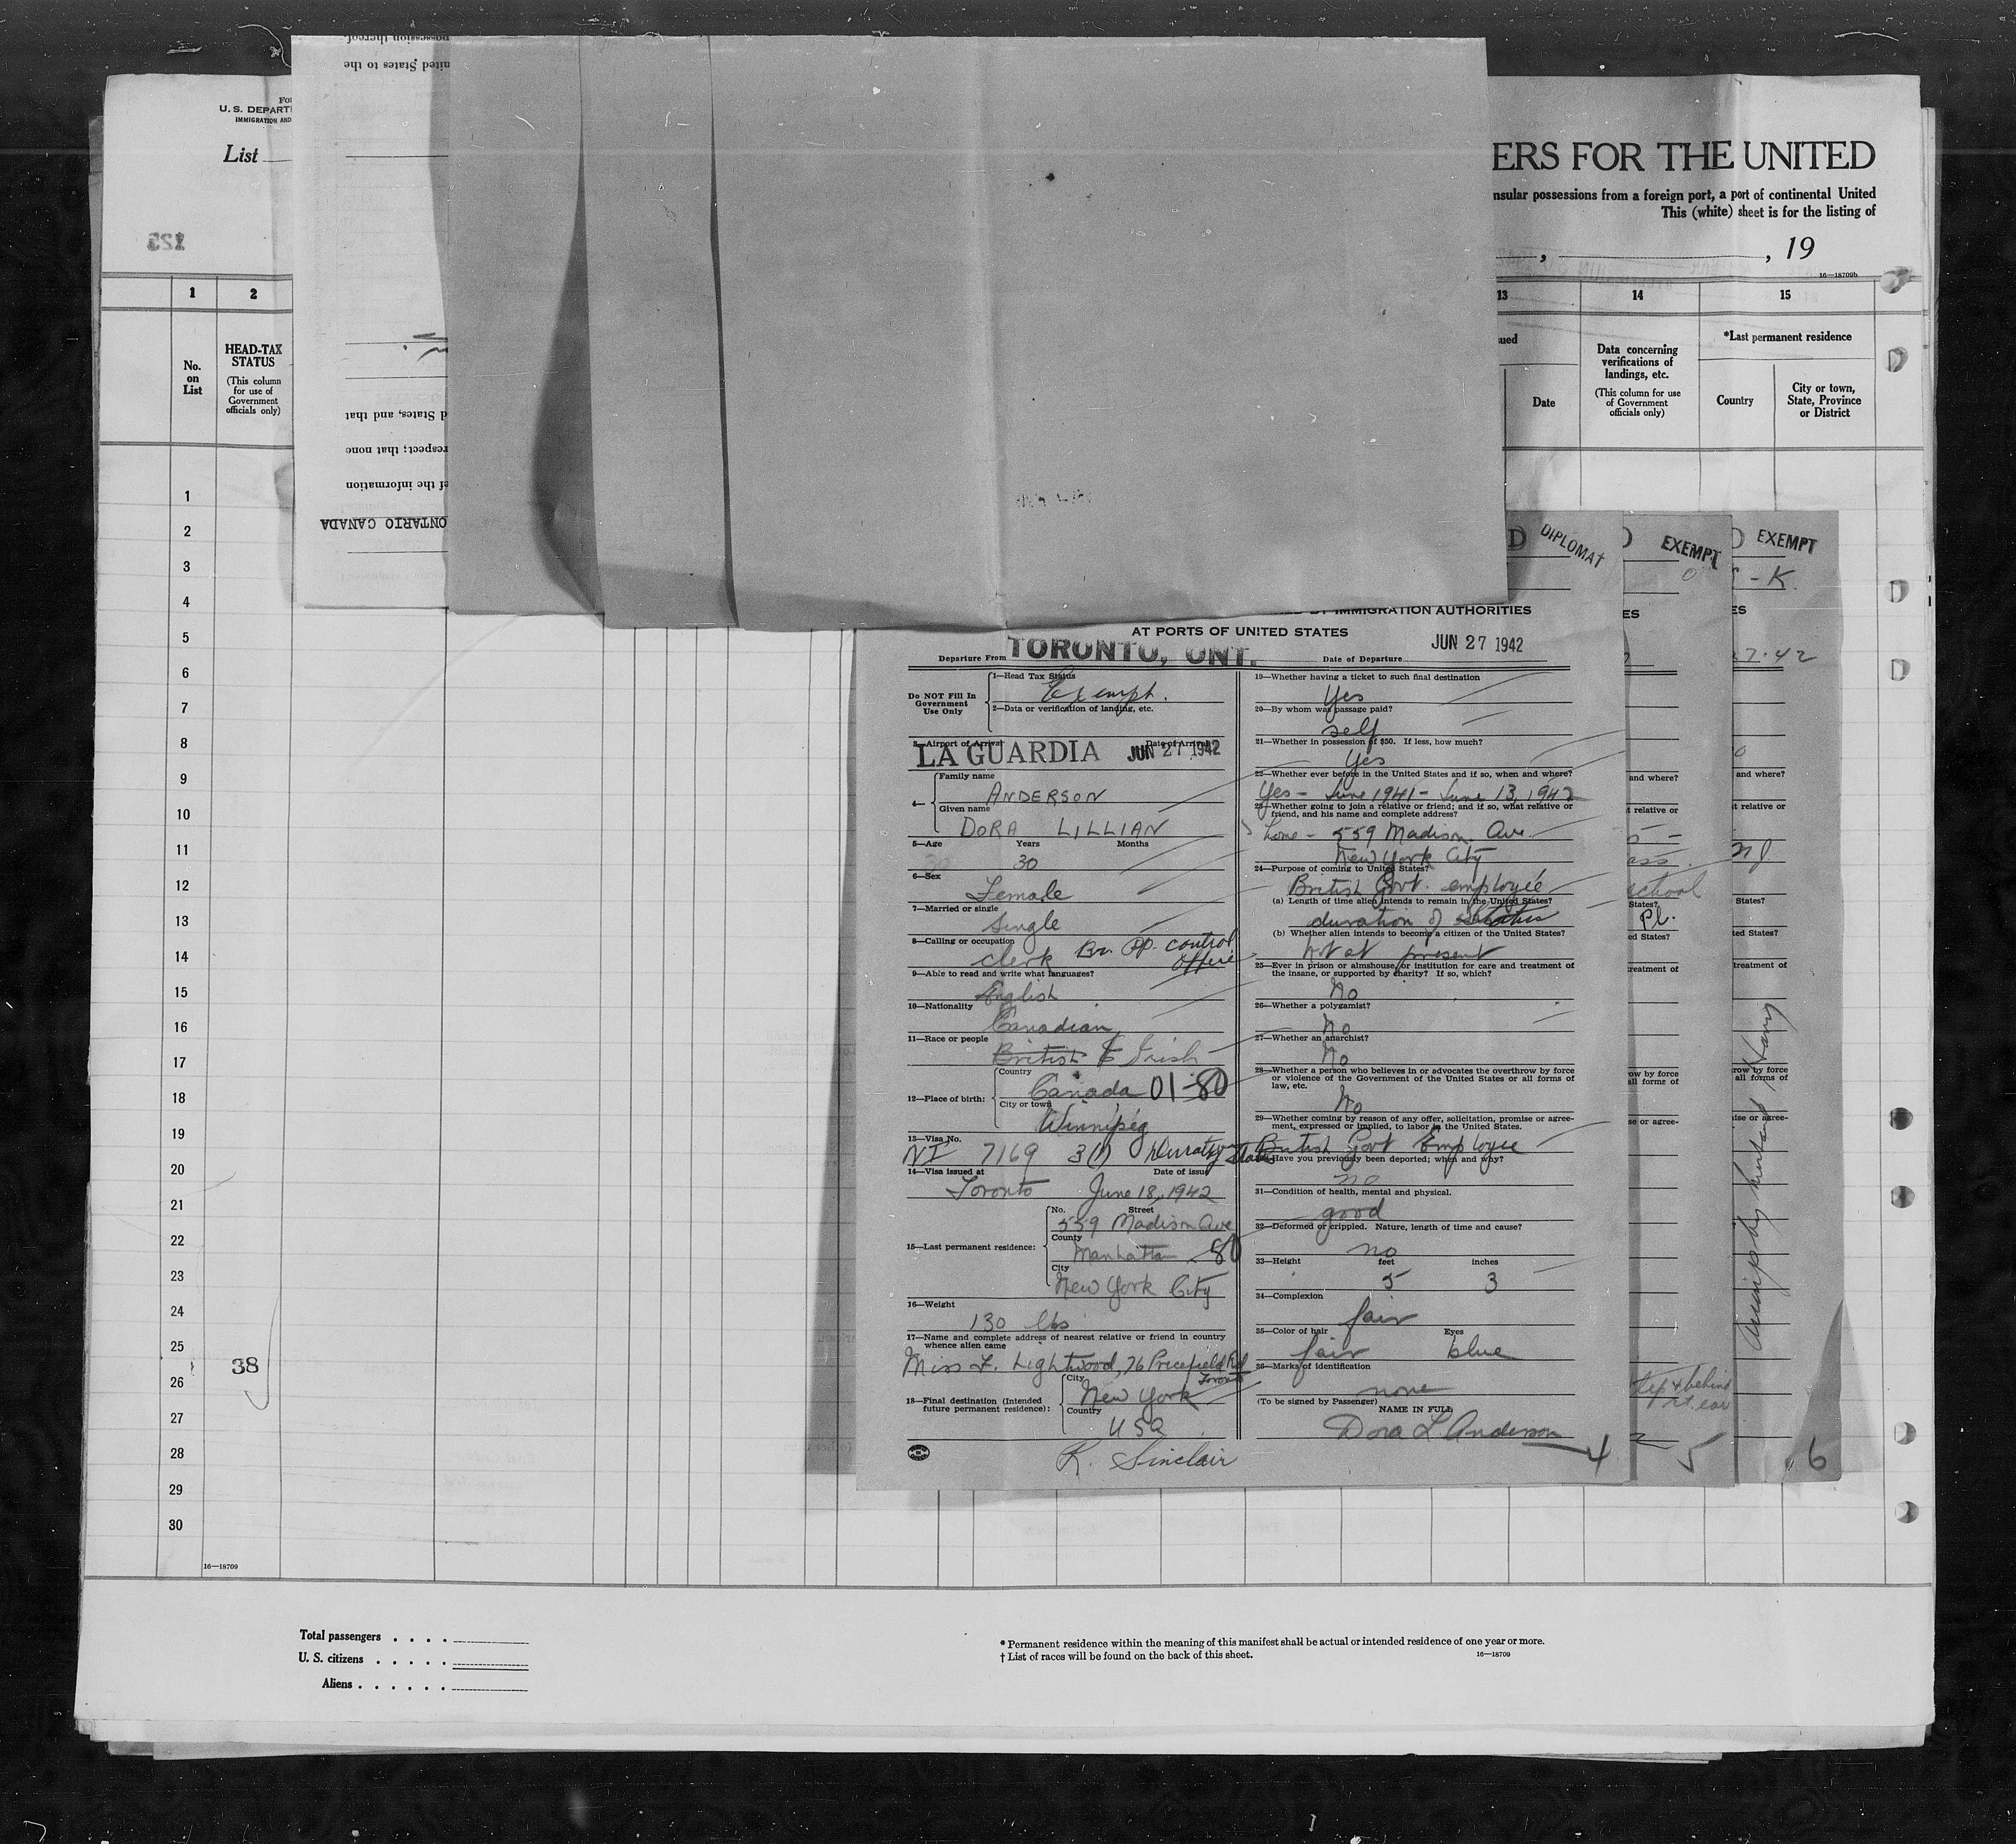 U. S. DEPART
IMMIGRATION AND
List
123
ERS FOR THE UNITED
nsular possessions from a foreign port, a port of continental United
This (white) sheet is for the listing of
, , 19
16—18709b
1
2
13
14
15
No. on List
HEAD-TAX STATUS
(This column for use of Government officials only)
ued
Date
Data concerning verifications of landings, etc.
(This column for use of Government officials only)
*Last permanent residence
Country
City or town, State, Province or District
possession thereof
nited States to the
d States, and that
respect; that none
ef the information
ONTARIO CANADA
1
2
3
4
5
6
7
8
9
10
11
12
13
14
15
16
17
18
19
20
21
22
23
24
25
26
27
28
29
30
38
16—18709
D DIPLOMAT
IMMIGRATION AUTHORITIES
AT PORTS OF UNITED STATES
Departure From TORONTO, ONT. Date of Departure JUN 27 1942
Do NOT Fill In Government Use Only
1—Head Tax Status
Exempt.
2—Data or verification of landing, etc.
3—Airport of Arrival Date of Arrival
LA GUARDIA JUN 27 1942
4—
Family name
ANDERSON
Given name
DORA LILLIAN
5—Age Years Months
30 30
6—Sex
Female
7—Married or single
Single
8—Calling or occupation
Clerk Br. PP. control office
9—Able to read and write what languages?
English
10—Nationality
Canadian
11—Race or people
British Irish
12—Place of birth:
Country
Canada 01-80
City or town
Winnipeg
13—Visa No.
NI 7169 3(1) Durat of Status
14—Visa issued at Date of issue
Toronto June 18, 1942
15—Last permanent residence:
No. Street
559 Madison Ave
County
Manhattan 80
City
New York City
16—Weight
130 lbs
17—Name and complete address of nearest relative or friend in country
whence alien came
Miss F. Lightwood, 76 Pricefield Rd
Toronto
18—Final destination (Intended
future permanent residence):
City
New York
Country
USA
R. Sinclair
19—Whether having a ticket to such final destination
Yes
20—By whom was passage paid?
self
21—Whether in possession of $50. If less, how much?
Yes
22—Whether ever before in the United States and if so, when and where?
Yes - June 1941 - June 13, 1942
23—Whether going to join a relative or friend; and if so, what relative or
friend, and his name and complete address?
home - 559 Madison Ave
New York City
24—Purpose of coming to United States?
British Govt. employee
(a) Length of time alien intends to remain in the United States?
duration of status
(b) Whether alien intends to become a citizen of the United States?
Not at present
25—Ever in prison or almshouse, or institution for care and treatment of
the insane, or supported by charity? If so, which?
No
26—Whether a polygamist?
No
27—Whether an anarchist?
No
28—Whether a person who believes in or advocates the overthrow by force
or violence of the Government of the United States or all forms of
law, etc.
No
29—Whether coming by reason of any offer, solicitation, promise or agree-
ment, expressed or implied, to labor in the United States.
British Govt Employee
Have you previously been deported; when and why?
no
31—Condition of health, mental and physical.
good
32—Deformed or crippled. Nature, length of time and cause?
no
33—Height feet inches
5 3
34—Complexion
fair
35—Color of hair Eyes
fair blue
36—Marks of identification
none
(To be signed by Passenger)
NAME IN FULL
Dora L. Anderson
4
EXEMPT
ES
and where?
t relative or
ass.
school
States?
Pl.
ed States?
reatment of
row by force
all forms of
se or agree-
behind
rt. ear
5
EXEMPT
- K
ES
27.42
and where?
t relative or
NJ.
States?
ted States?
treatment of
row by force
all forms of
ise or agree-
6
Total passengers . . . .
U. S. citizens . . . . .
Aliens . . . . . .
* Permanent residence within the meaning of this manifest shall be actual or intended residence of one year or more.
† List of races will be found on the back of this sheet.
16—18709